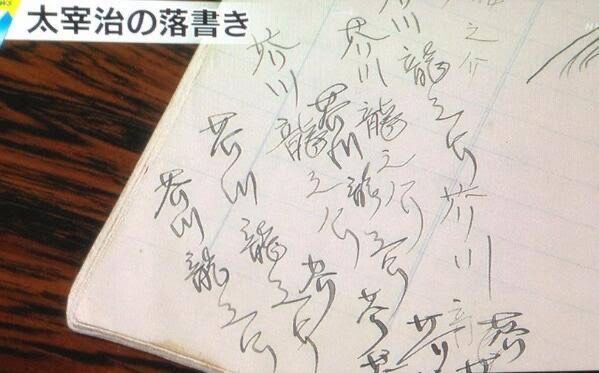 太宰治の落書き
之介
龍之介
芥川
芥川龍之介
芥川龍之介
芥川龍之介
芥川龍之介
芥川龍之介
芥
芥
芥川
龍
芥